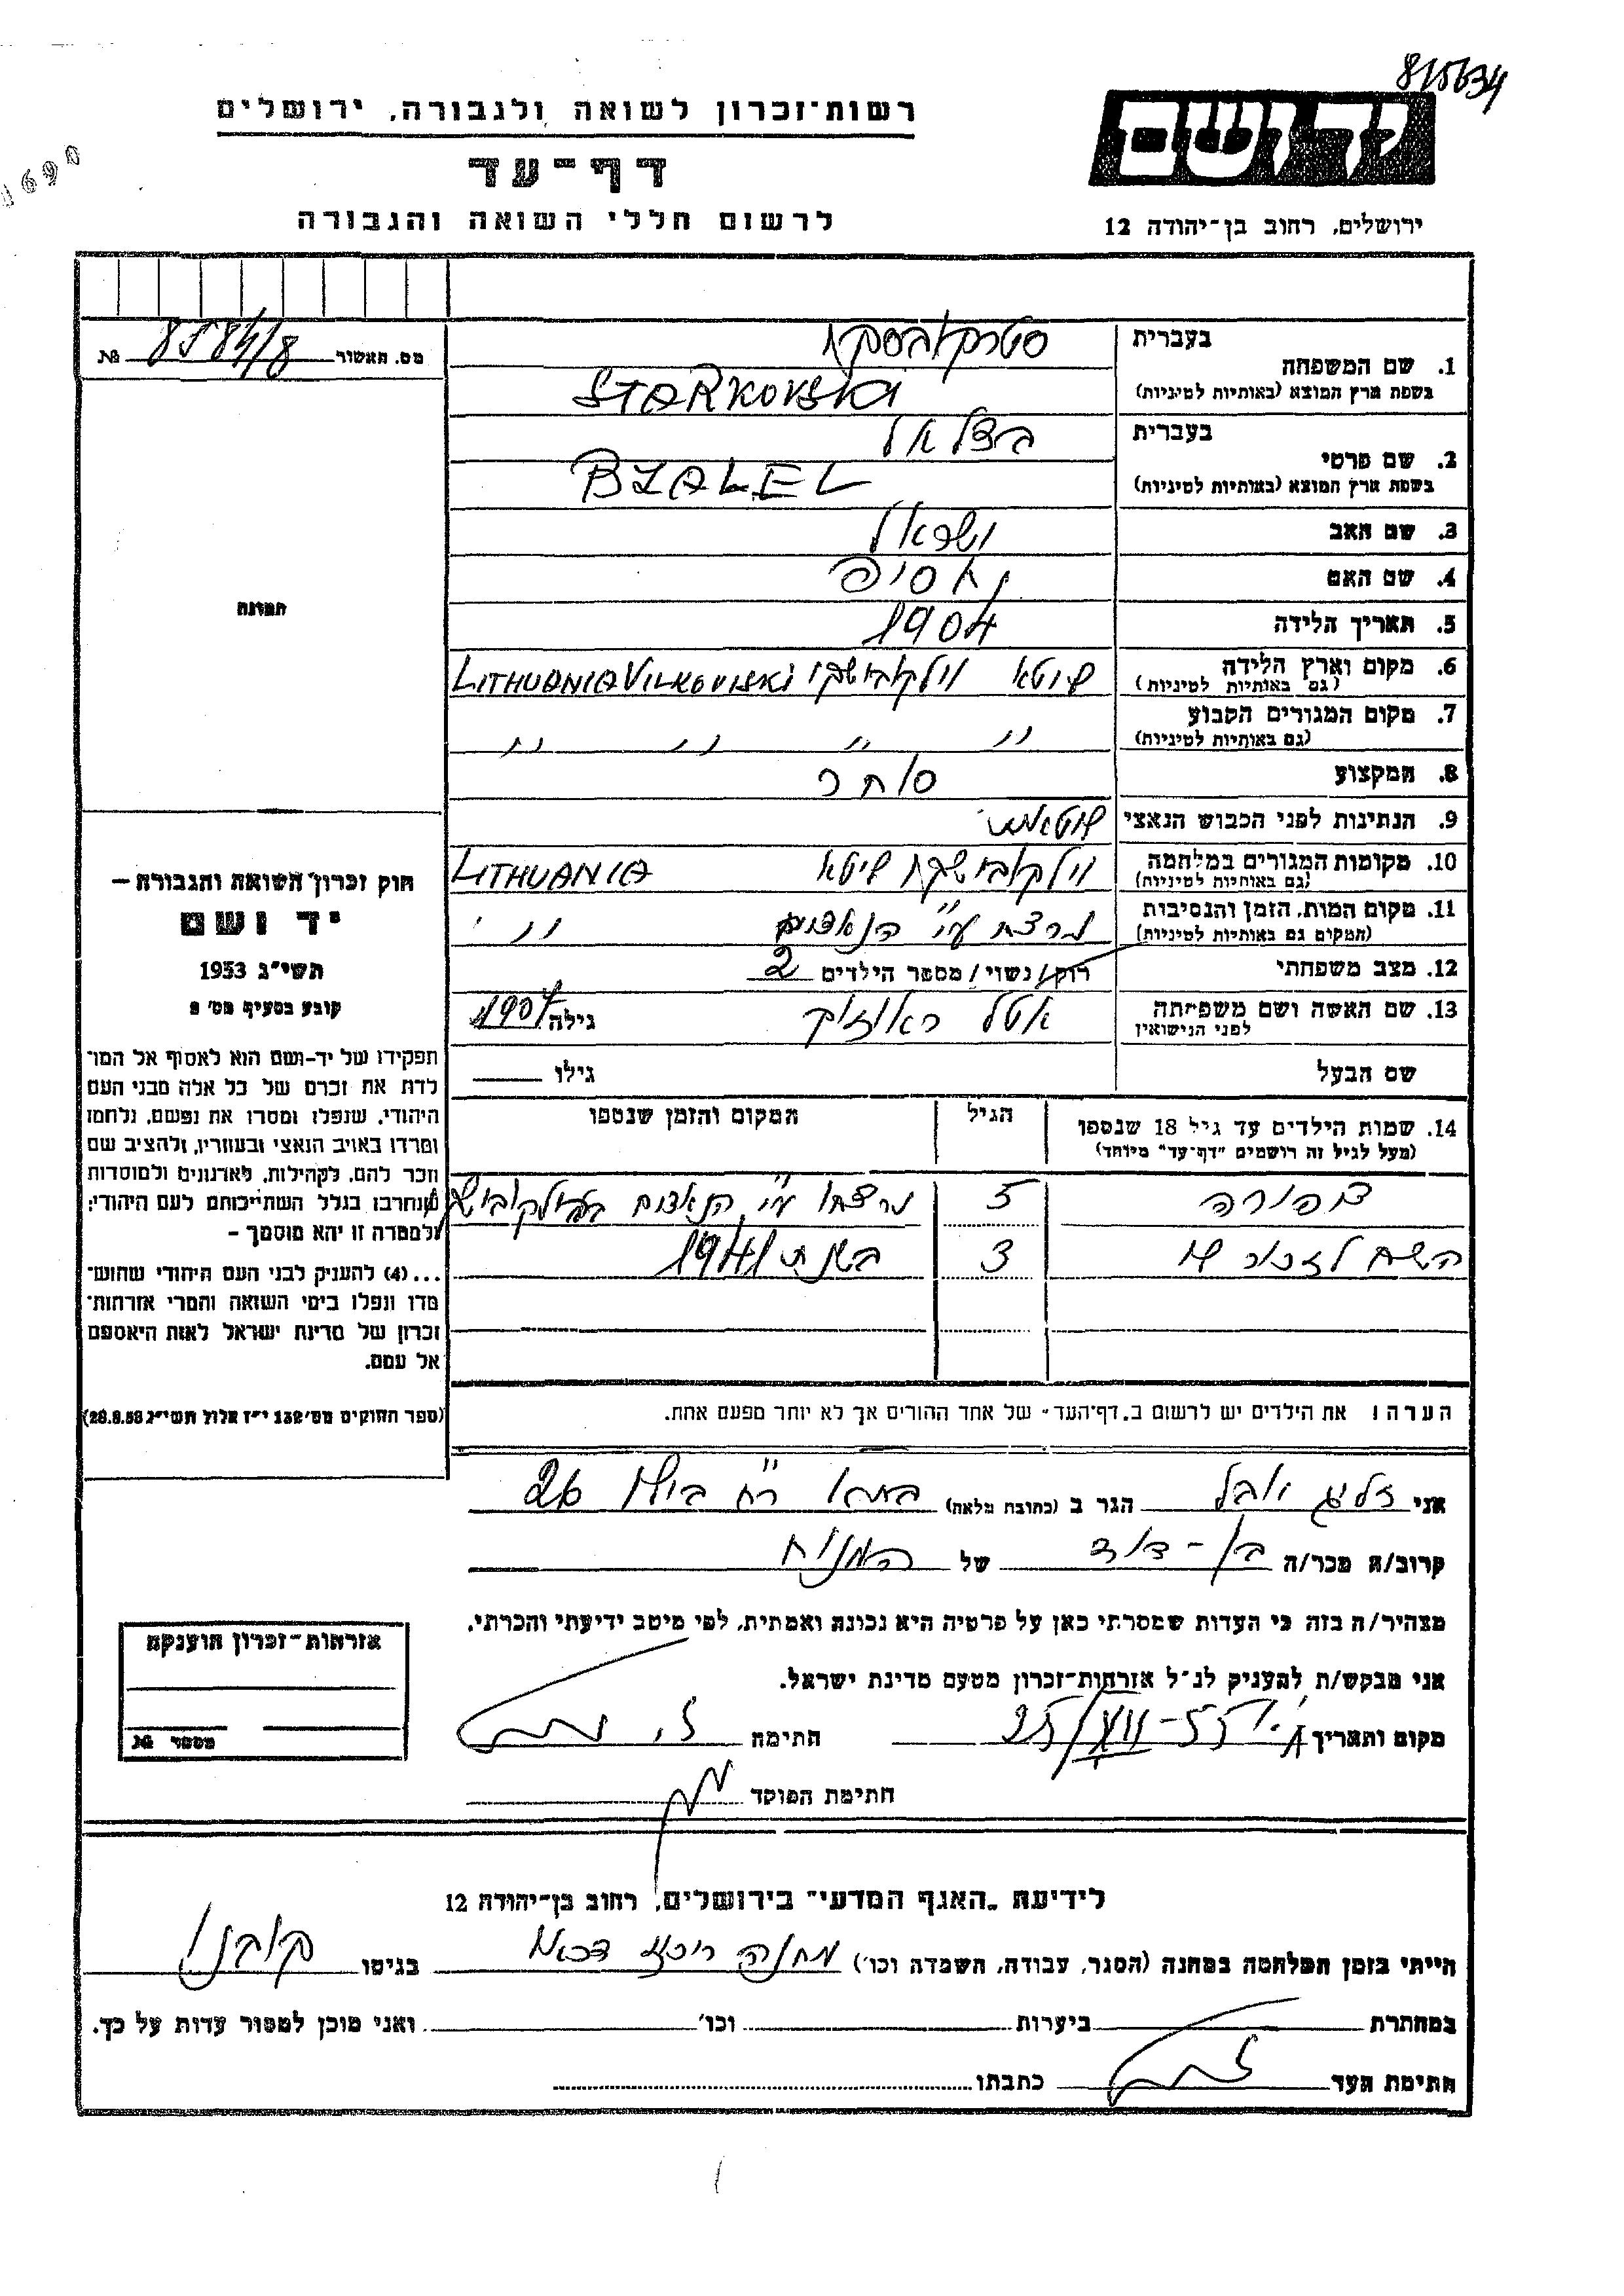 815634
רשות־זכרון לשואה ולגבורה, ירושלים
דף־עד
לרשום חללי השואה והגבורה
יד ושם
ירושלים, רחוב בן־יהודה 12
מס. תאשור 8584/8 №
תמונה
חוק זכרון השואה והגבורה –
יד ושם
תשי"ג 1953
קובע בסעיף מס' 2
תפקידו של יד-ושם הוא לאסוף אל המו־
לדת את זכרם של כל אלה מבני העם
היהודי, שנפלו ומסרו את נפשם, נלחמו
ומרדו באויב הנאצי ובעוזריו, ולהציב שם
וזכר להם, לקהילות, לארגונים ולמוסדות
שנחרבו בגלל השתייכותם לעם היהודי;
ולמטרה זו יהא מוסמך –
...(4) להעניק לבני העם היהודי שהוש־
מדו ונפלו בימי השואה והמרי אזרחות־
זכרון של מדינת ישראל לאות היאספם
אל עמם.
(ספר החוקים מס' 132 י"ז אלול תשי"ג 28.8.53)
1. שם המשפחה
בעברית סטרקובסקי
בשפת ארץ המוצא (באותיות לטיניות) STARKOVSKI
2. שם פרטי
בעברית בצלאל
בשפת ארץ המוצא (באותיות לטיניות) BZALEL
3. שם האב ישראל
4. שם האם
5. תאריך הלידה 1904
6. מקום וארץ הלידה ליטא וילקובישקי LITHUANIA VILKOVISKI
(גם באותיות לטיניות)
7. מקום המגורים הקבוע " " " "
(גם באותיות לטיניות)
8. המקצוע סוחר
9. הנתינות לפני הכבוש הנאצי ליטאית
10. מקומות המגורים במלחמה וילקובישקי ליטא LITHUANIA
(גם באותיות לטיניות)
11. מקום המות, הזמן והנסיבות נרצח ע"י הנאצים "
(המקום גם באותיות לטיניות)
12. מצב משפחתי רוק/נשוי/מספר הילדים 2
13. שם האשה ושם משפחתה לפני הנישואין אטל גילה 1907
שם הבעל גילו
14. שמות הילדים עד גיל 18 שנספו הגיל המקום והזמן שנספו
(מעל לגיל זה רושמים "דף־עד" מיוחד)
צפורה 5 נרצחו ע"י הנאצים בוילקובישקי
השם לא זכור לי 3 בשנת 1941
הערה: את הילדים יש לרשום ב„דף־העד" של אחד ההורים אך לא יותר מפעם אחת.
אני זליג הגר ב (כתובת מלאה) 26
קרוב/ה מכר/ה בן-דוד של המנוח
מצהיר/ה בזה כי העדות שמסרתי כאן על פרטיה היא נכונה ואמתית, לפי מיטב ידיעתי והכרתי.
אני מבקש/ת להעניק לנ"ל אזרחות־זכרון מטעם מדינת ישראל.
מקום ותאריך 25/VII-55 חתימה
חתימת הפוקד
אזרחות־זכרון הוענקה
מספר №
לידיעת „האגף המדעי" בירושלים, רחוב בן־יהודה 12
הייתי בזמן המלחמה במחנה (הסגר, עבודה, השמדה וכו') מחנה ריכוז דכאו בגיטו קובנו
במחתרת ביערות וכו' ואני מוכן למסור עדות על כך.
חתימת העד כתבתו